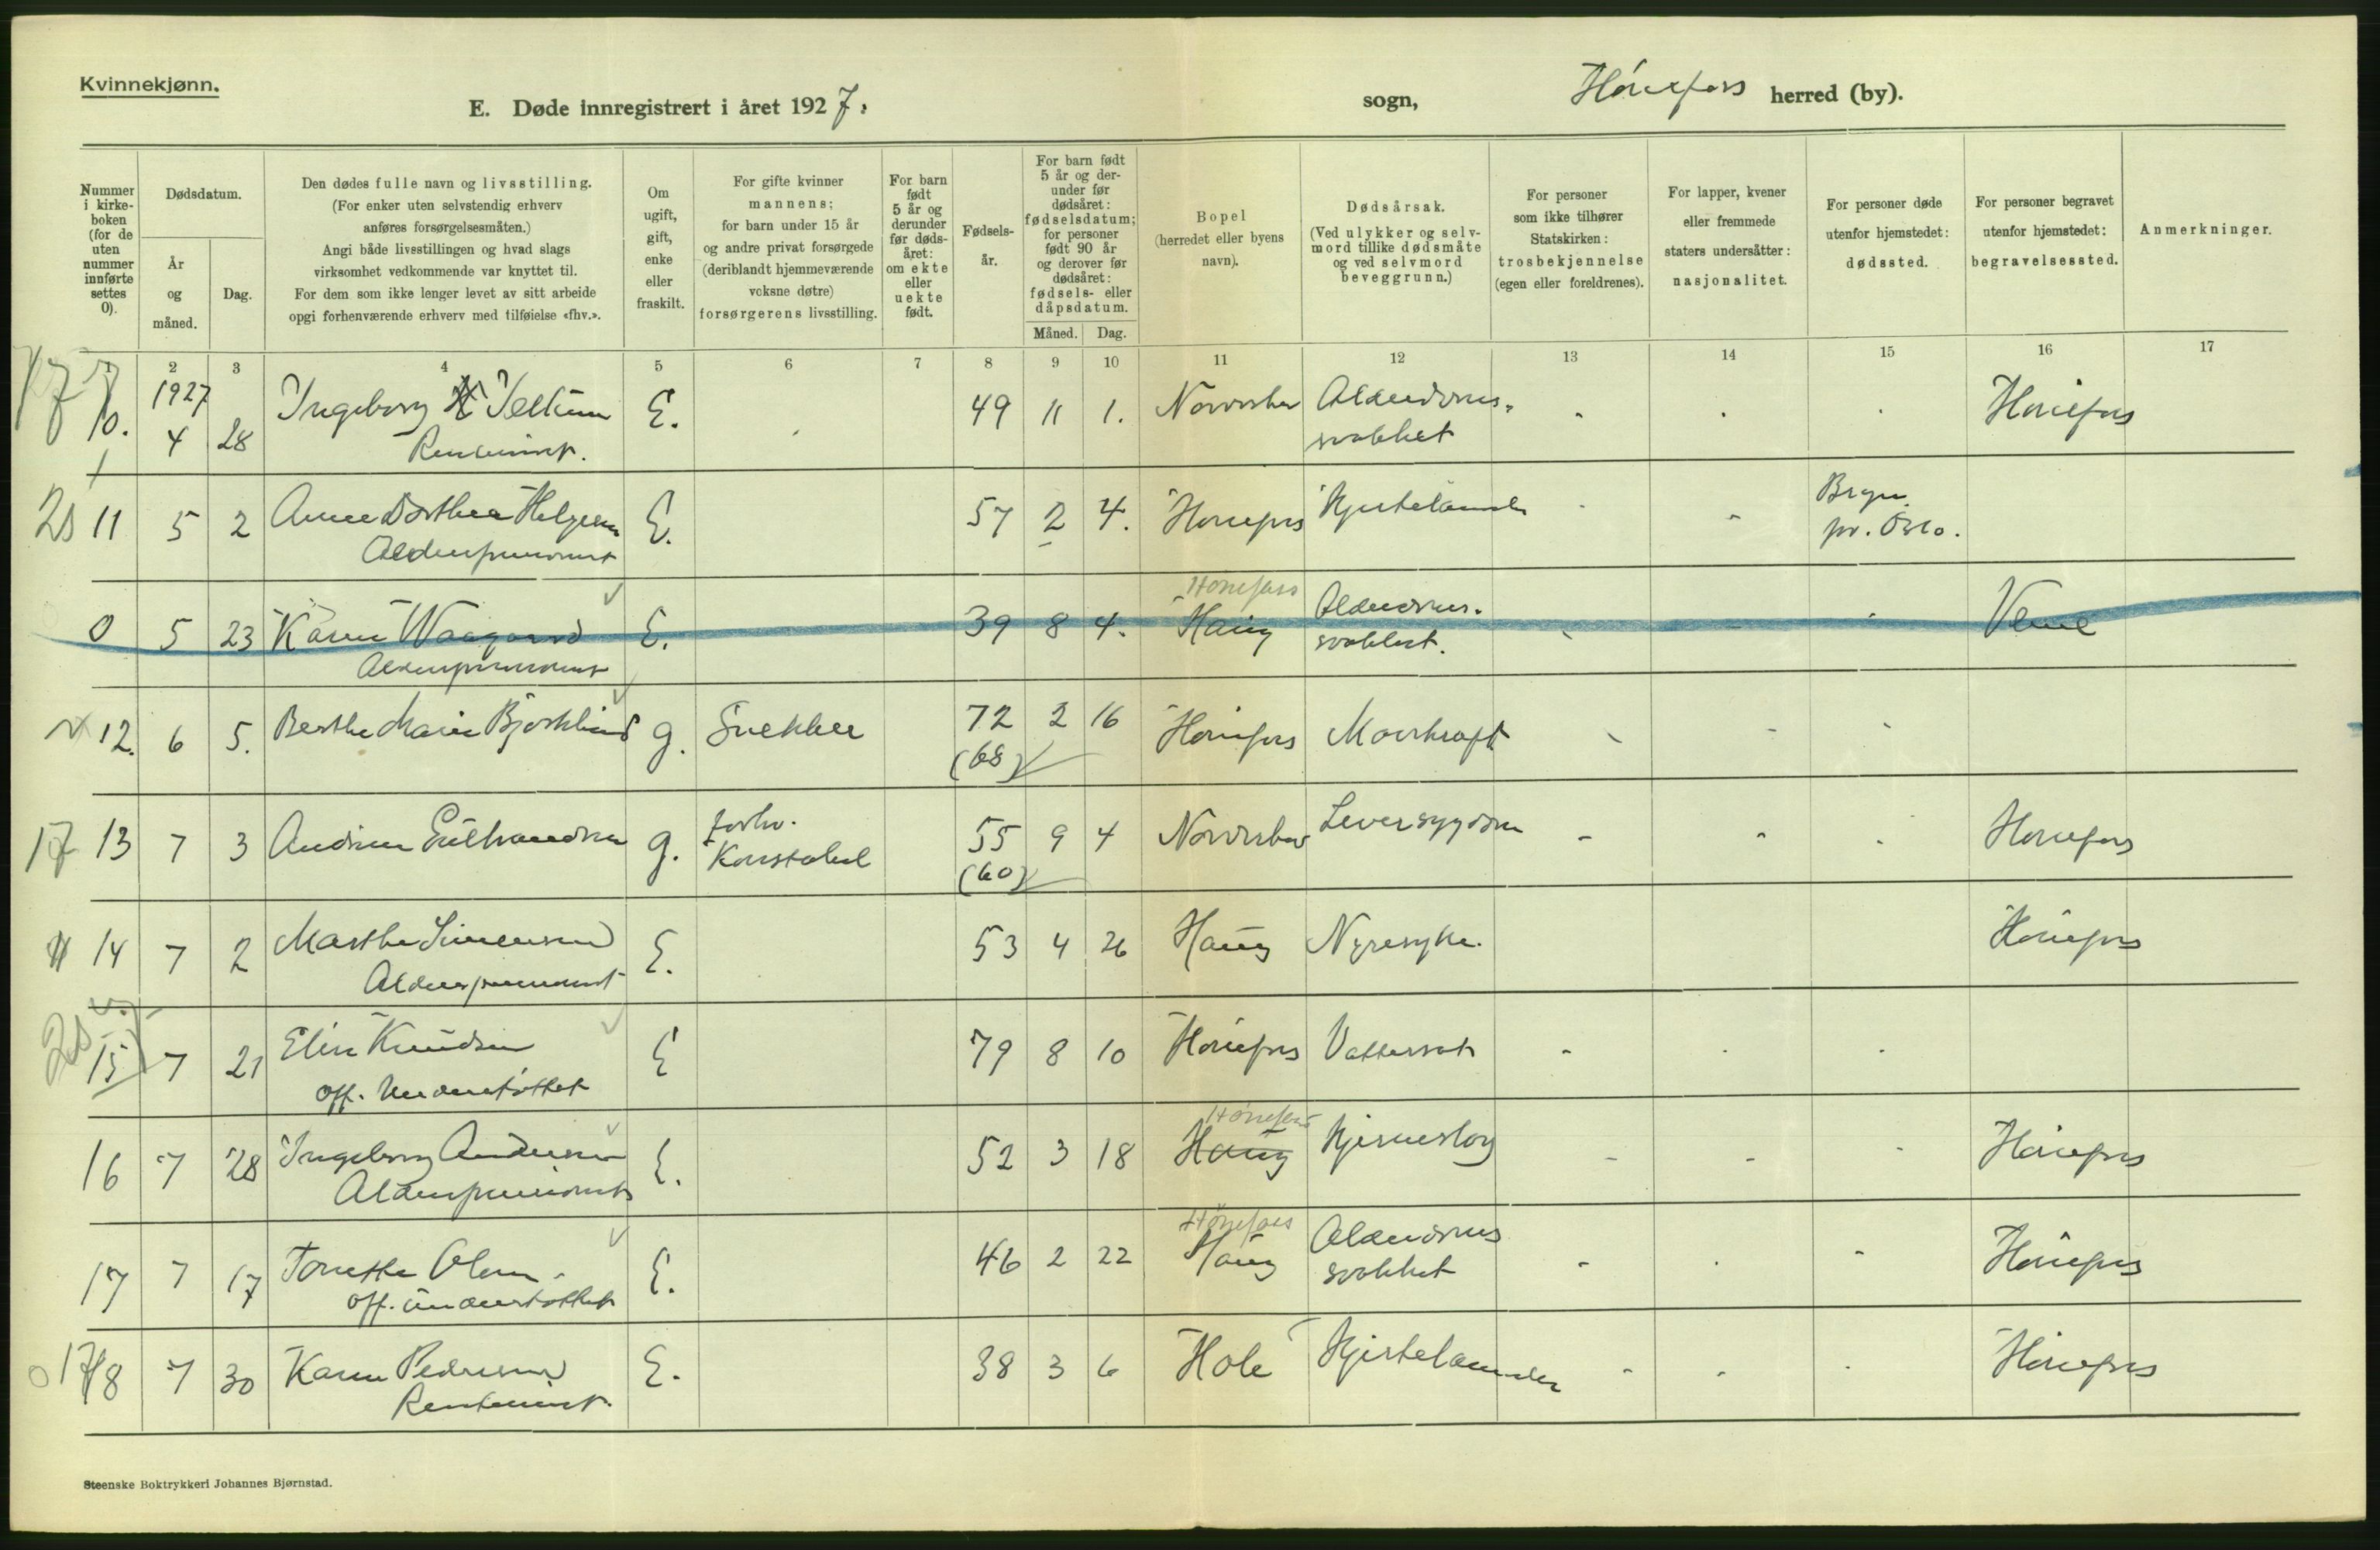 Kvinnekjønn.
E. Døde innregistrert i året 1927. sogn, Hönefoss herred (by).
Nummer i kirke-boken (for de uten nummer innførte settes 0).
Dødsdatum.
År og måned.
Dag.
Den dødes fulle navn og livsstilling.
(For enker uten selvstendig erhverv
anføres forsørgelsesmåten.)
Angi både livsstillingen og hvad slags
virksomhet vedkommende var knyttet til.
For dem som ikke lenger levet av sitt arbeide
opgi forhenværende erhverv med tilføielse «fhv.».
Om ugift, gift, enke eller fraskilt.
For gifte kvinner
mannens;
for barn under 15 år
og andre privat forsørgede
(deriblandt hjemmeværende
voksne døtre)
forsørgerens livsstilling.
For barn født 5 år og derunder før døds-året: om ekte eller uekte født.
Fødsels-år.
For barn født 5 år og der-under før dødsåret: fødselsdatum; for personer født 90 år og derover før dødsåret: fødsels- eller dåpsdatum.
Måned. Dag.
Bopel
(herredet eller byens
navn).
Dødsårsak.
(Ved ulykker og selv-
mord tillike dødsmåte
og ved selvmord
beveggrunn.)
For personer
som ikke tilhører
Statskirken:
trosbekjennelse
(egen eller foreldrenes).
For lapper, kvener
eller fremmede
staters undersåtter:
nasjonalitet.
For personer døde
utenfor hjemstedet:
dødssted.
For personer begravet
utenfor hjemstedet:
begravelsessted.
Anmerkninger.
1 2 3 4 5 6 7 8 9 10 11 12 13 14 15 16 17
1927
10. 4 28 Ingeborg E. 49 11 1. Norderhov Alderdoms- Hönefoss
Rentenist. svakhet
11 5 2 Anne Dorthea Helgesen E. 57 2 4. Hönefoss Hjertelammelse Bryn
Alderspensionist pr. Oslo.
Hönefoss
0 5 23 Karen Waagaard E. 39 8 4. Haug Alderdoms- Veme
Alderspensionist svakhet.
12. 6 5. Berthe Marie Bjørklund g. Snekker 72 2 16 Hönefoss Marskraft
(68)
13 7 3 g. forhv. 55 9 4 Norderhov Leversygdom Hönefoss
Konstabel (60)
14 7 2 Marthe Simensen E. 53 4 26 Haug Nyresyke. Hönefoss
Alderspensionist
15 7 21 Elin Knudsen E 79 8 10 Hönefoss Vattersot
off. Understöttet
Hönefoss
16 7 28 Ingeborg Andersen E. 52 3 18 Haug Hjerneslag Hönefoss
Alderspensionist
Hönefoss
17 7 17 Tonette Olsen E. 46 2 22 Haug Alderdoms Hönefoss
off. understöttet svakhet
18 7 30 Karen Pedersen E. 38 3 6 Hole Hjertelammelse Hönefoss
Rentenist.
Steenske Boktrykkeri Johannes Bjørnstad.